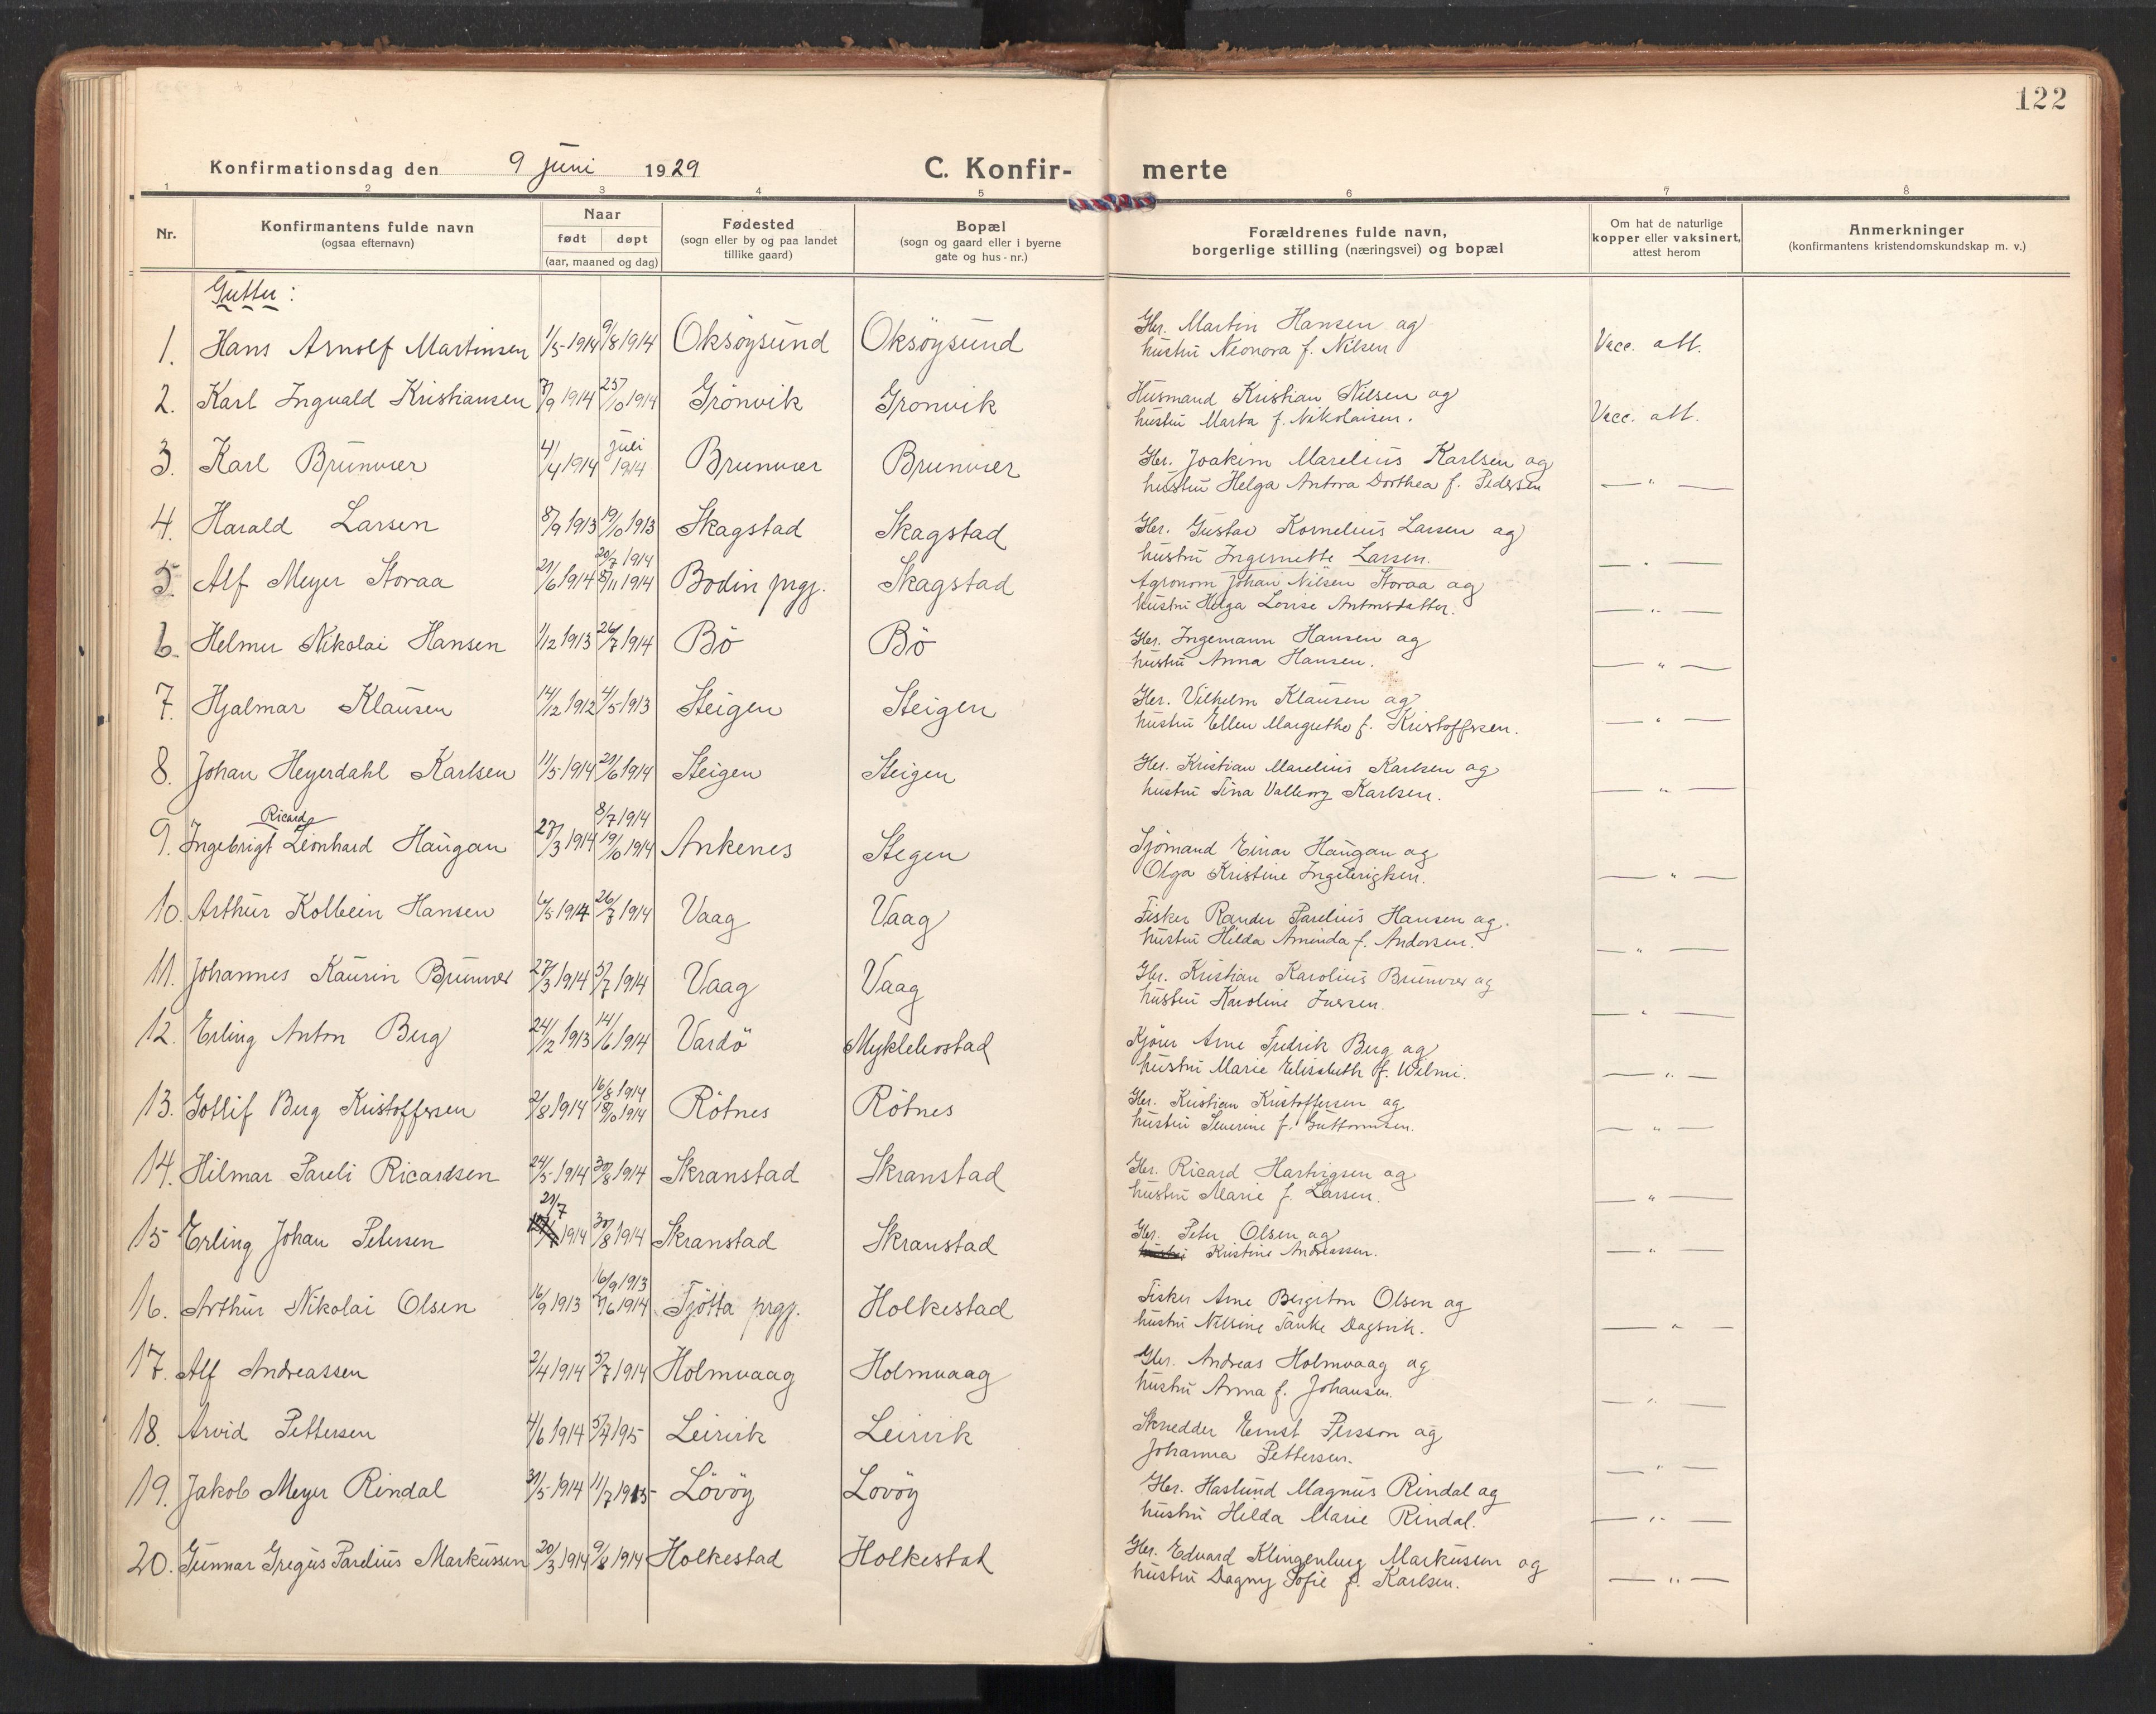 122
Konfirmationsdag den 9 juni 1929 C. Konfir- merte
1 2 3 4 5 6 7 8
Nr. Konfirmantens fulde navn (ogsaa efternavn) Naar født døpt (aar, maaned og dag) Fødested (sogn eller by og paa landet tillike gaard) Bopæl (sogn og gaard eller i byerne gate og hus-nr.) Forældrenes fulde navn, borgerlige stilling (næringsvei) og bopæl Om hat de naturlige kopper eller vaksinert, attest herom Anmerkninger (konfirmantens kristendomskundskap m. v.)
Gutter:
1. Hans Arnolf Martinsen 1/5-1914 9/8 1914 Oksöysund Oksöysund Gbr. Martin Hansen og
hustru Neonora f. Nilsen Vacc. att.
2. Karl Ingvald Kristiansen 7/9 1914 25/10 1914 Grönvik Gronvik Husmand Kristian Nilsen og
hustru Marta f. Nikolaisen. Vacc. att.
3. Karl Brunvær 4/4 1914 juli 1914 Brunvær Brunvær Gbr. Joakim Marelius Karlsen og
hustru Helga Antora Dorthea f. Pedersen — " —
4. Harald Larsen 8/9 1913 19/10 1913 Skagstad Skagstad Gbr. Gustav Kornelius Larsen og
hustru Ingernette Larsen. — " —
20/7 1914
5. Alf Meyer Storaa 21/6 1914 8/11 1914 Bodin prgj. Skagstad Agronom Johan Nilsen Storaa og
hustru Helga Lovise Antonsdatter. — " —
6. Helmer Nikolai Hansen 1/12 1913 26/7 1914 Bö Bö Gbr. Ingemann Hansen og
hustru Anna Hansen. — " —
7. Hjalmar Klausen 14/12 1912 4/5 1913 Steigen Steigen Gbr. Vilhelm Klausen og
hustru Ellen Margrethe f. Kristoffersen. — " —
8. Johan Heyerdahl Karlsen 11/5-1914 21/6 1914 Steigen Steigen Gbr. Kristian Marelius Karlsen og
hustru Tina Valborg Karlsen. — " —
Ricard 8/7 1914
9. Ingebrigt Leonhard Haugan 27/3 1914 19/10 1914 Ankenes Stegen Sjömand Einar Haugan og
Olga Kristine Ingebrigtsen. — " —
10. Arthur Kolbein Hansen 6/5 1914 26/7 1914 Vaag Vaag Fisker Rander Parelius Hansen og
hustru Hilda Aminda f. Andersen. — " —
11. Johannes Kaurin Brunvær 27/3 1914 5/7 1914 Vaag Vaag Gbr. Kristian Karolius Brunvær og
hustru Karoline Iversen. — " —
12. Erling Anton Berg 24/12 1913 14/6 1914 Vardö Myklebostad Arne Fredrik Berg og
hustru Marie Elisabeth f. Wilmi. — " —
16/8 1914
13. Gotlif Berg Kristoffersen 2/8 1914 18/10 1914 Rötnes Rötnes Gbr. Kristian Kristoffersen og
hustru Severine f. Guttormsen. — " —
14. Hilmar Pareli Ricardsen 24/5-1914 30/8 1914 Skranstad Skranstad Gbr. Ricard Hartvigsen og
hustru Marie f. Larsen. — " —
21/7
15 Erling Johan Petersen 1914 30/8 1914 Skranstad Skranstad Gbr. Peter Olsen og
hustru Kristine Andreassen. — " —
16/9 1913
16. Arthur Nikolai Olsen 16/9 1913 7/6 1914 Tjötta prgj. Holkestad Fisker Arne Bergiton Olsen og
hustru Nilsine Tanke Dagsvik. — " —
17. Alf Andreassen 2/4 1914 5/7 1914 Holmvaag Holmvaag Gbr. Andreas Holmvaag og
hustru Anna f. Johansen. — " —
18. Arvid Pettersen 4/6 1914 5/7 195- Leirvik Leirvik Skredder Ernst Persson og
Johanna Pettersen. — " —
19. Jakob Meyer Rindal 31/5-1914 11/7 1915- Lövöy Lovöy Gbr. Haslund Magnus Rindal og
hustru Hilda Marie Rindal. — " —
20. Gunnar Gregus Parelius Markussen 20/3 1914 9/8 1914 Holkestad Holkestad Gbr. Edvard Klingenberg Markussen og
hustru Dagny Sofie f. Karlsen. — " —